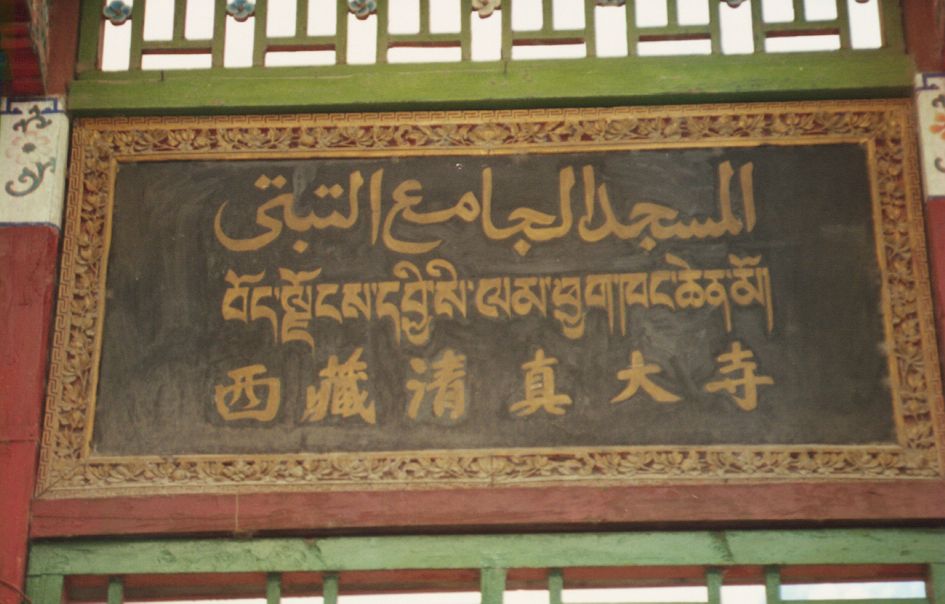 المسجد الجامع التبتى
བོད་ལྗོངས་དབྱི་སི་ལམ་ཕྱག་ཁང་ཆེན་མོ།
西藏清真大寺